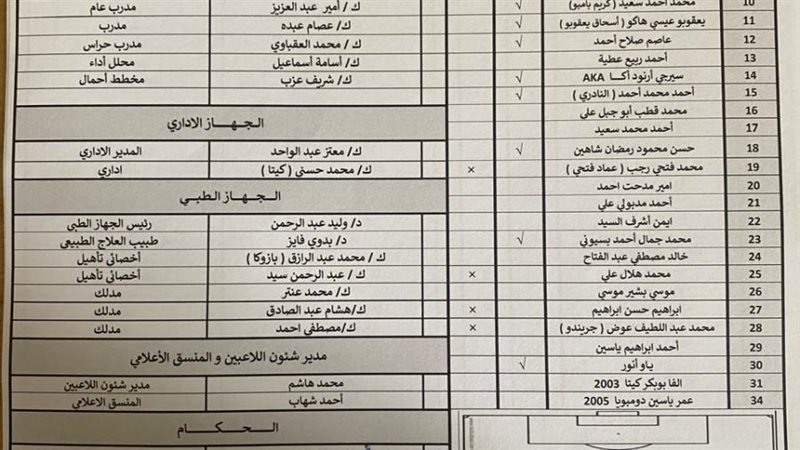 10 محمد احمد سعيد ( كريم بامبو) √
11 يعقوبو عيسي هاكو ( أسحاق يعقوبو ) √
12 عاصم صلاح أحمد √
13 أحمد ربيع عطية
14 سيرجي أرنود أكــا AKA √
15 أحمد محمد أحمد ( النادري ) √
16 محمد قطب أبو جبل علي
17 أحمد محمد سعيد
18 حسن محمود رمضان شاهين √
19 محمد فتحي رجب ( عماد فتحي ) ×
20 امير مدحت احمد
21 أحمد مدبولي علي
22 ايمن أشرف السيد
23 محمد جمال أحمد بسيوني √
24 خالد مصطفي عبد الفتاح
25 محمد هلال علي ×
26 موسي بشير موسي
27 ابراهيم حسن ابراهيم ×
28 محمد عبد اللطيف عوض ( جريندو ) ×
29 أحمد ابراهيم ياسين
30 ياو أنور √
31 الفا بوبكر كيتا 2003
34 عمر ياسين دومبويا 2005
ك / أمير عبد العزيز مدرب عام
ك / عصام عبده مدرب
ك / محمد العقباوي مدرب حراس
ك / أسامة أسماعيل محلل أداء
ك/ شريف عزب مخطط أحمال
الـجـهــاز الاداري
ك/ معتز عبد الواحد المدير الاداري
ك/ محمد حسنى ( كيتا ) اداري
الـجـهــاز الطـبـي
د/ وليد عبد الرحمن رئيس الجهاز الطبى
د/ بدوي فايز طبيب العلاج الطبيعى
ك / محمد عبد الرازق ( بازوكا ) أخصائي تأهيل
ك / عبد الرحمن سيد أخصائي تأهيل
ك / محمد عنتر مدلك
ك/هشام عبد الصادق مدلك
ك/مصطفي احمد مدلك
مدير شئون اللاعبين و المنسق الأعلامي
محمد هاشم مدير شئون اللاعبين
أحمد شهاب المنسق الاعلامي
الـــحـــكـــام